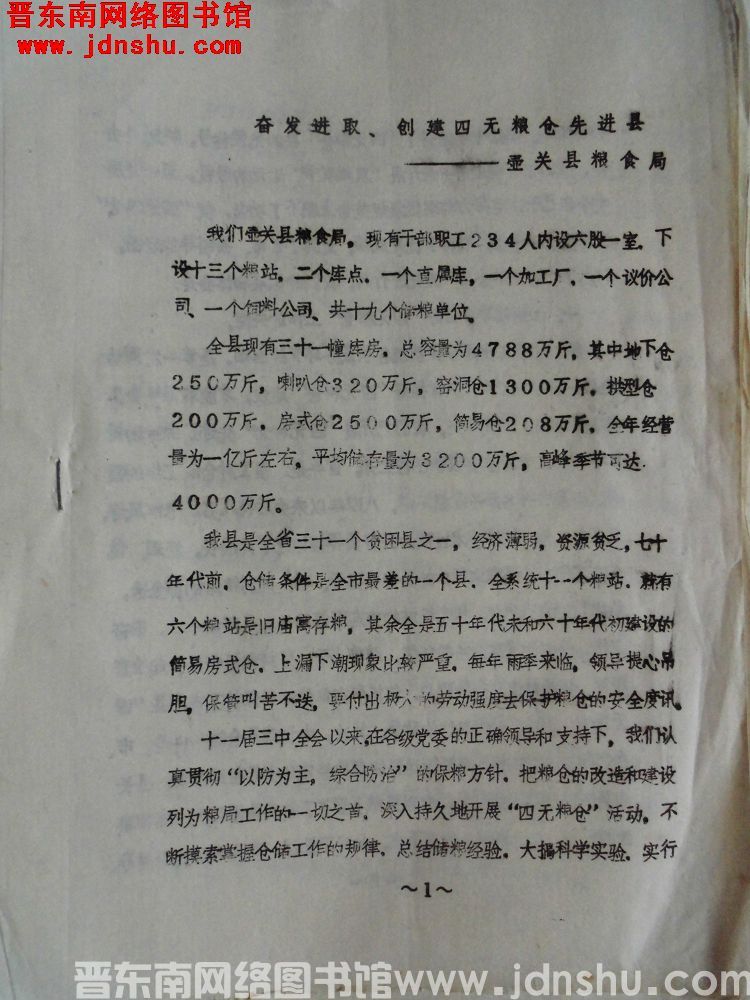 晋东南网络图书馆
www.jdnshu.com
奋发进取、创建四无粮仓先进县
———壶关县粮食局
我们壶关县粮食局。现有干部职工234人内设六股一室。下
设十三个粮站。二个库点。一个直属库，一个加工厂。一个议价公
司、一个饲料公司、共十九个储粮单位。
全县现有三十一幢库房。总容量为4788万斤，其中地下仓
250万斤，喇叭仓320万斤，窑洞仓1300万斤。拱型仓
200万斤。房式仓2500万斤，简易仓208万斤。全年经营
量为一亿斤左右，平均储存量为3200万斤，高峰季节可达
4000万斤。
我县是全省三十一个贫困县之一，经济薄弱，资源贫乏，七十
年代前，仓储条件是全市最差的一个县．全系统十一个粮站．就有
六个粮站是旧庙寓存粮，其余全是五十年代末和六十年代初建设的
简易房式仓．上漏下潮现象比较严重．每年雨季来临，领导提心吊
胆，保管叫苦不迭，要付出极大的劳动强度去保护粮仓的安全度汛。
十一届三中全会以来，在各级党委的正确领导和支持下，我们认
真贯彻“以防为主，综合防治”的保粮方针．把粮仓的改造和建设
列为粮局工作的一切之首．深入持久地开展“四无粮仓”活动。不
断摸索掌握仓储工作的规律．总结储粮经验．大搞科学实验．实行
～1～
晋东南网络图书馆www.jdnshu.com